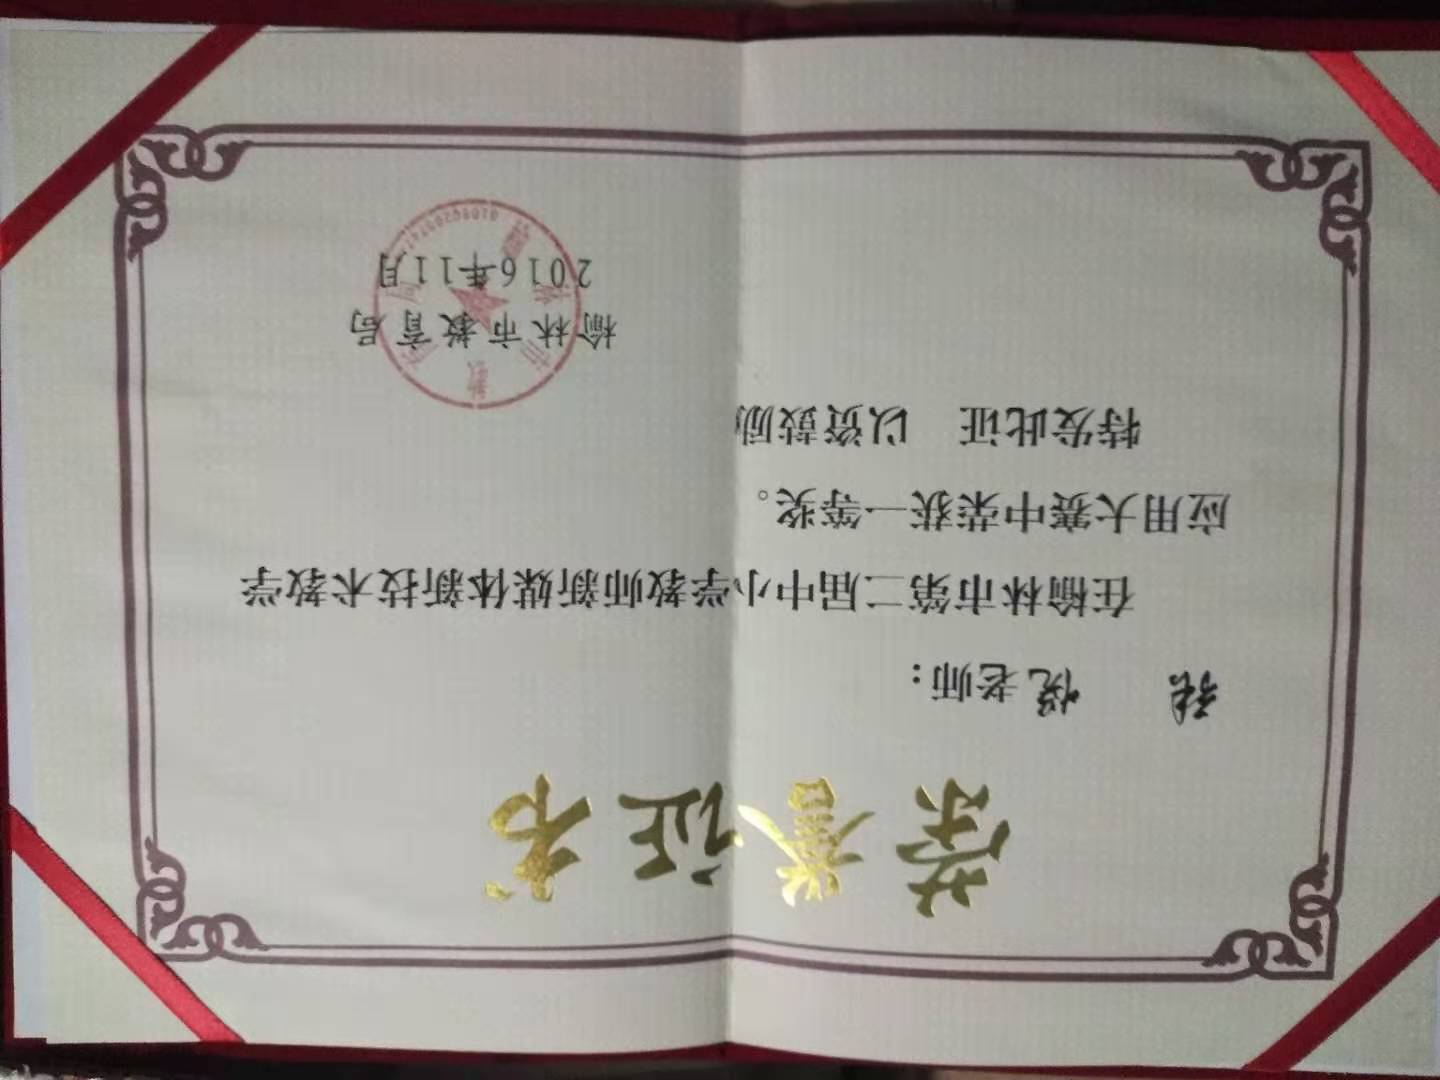 荣誉证书
张 悦老师：
在榆林市第二届中小学教师新媒体新技术教学
应用大赛中荣获一等奖。
特发此证 以资鼓励
榆林市教育局
2016年11月